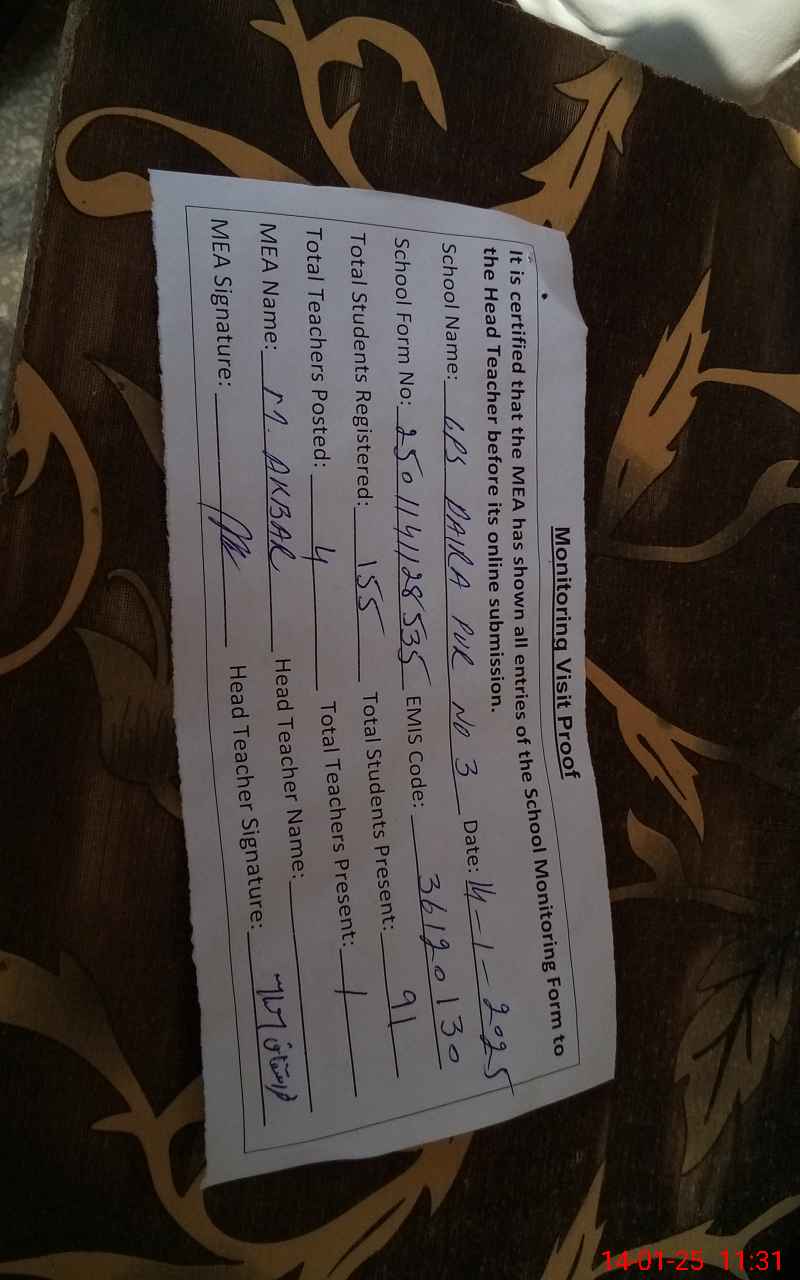 Monitoring Visit Proof
It is certified that the MEA has shown all entries of the School Monitoring Form to
the Head Teacher before its online submission.
School Name: GPS DAIRA PUR NO 3 Date: 14-1-2025
School Form No: 2501141128535 EMIS Code: 36120130
Total Students Registered: 155 Total Students Present: 91
Total Teachers Posted: 4 Total Teachers Present: 1
MEA Name: M. AKBAR Head Teacher Name:
MEA Signature: Head Teacher Signature:
14-01-25 11:31